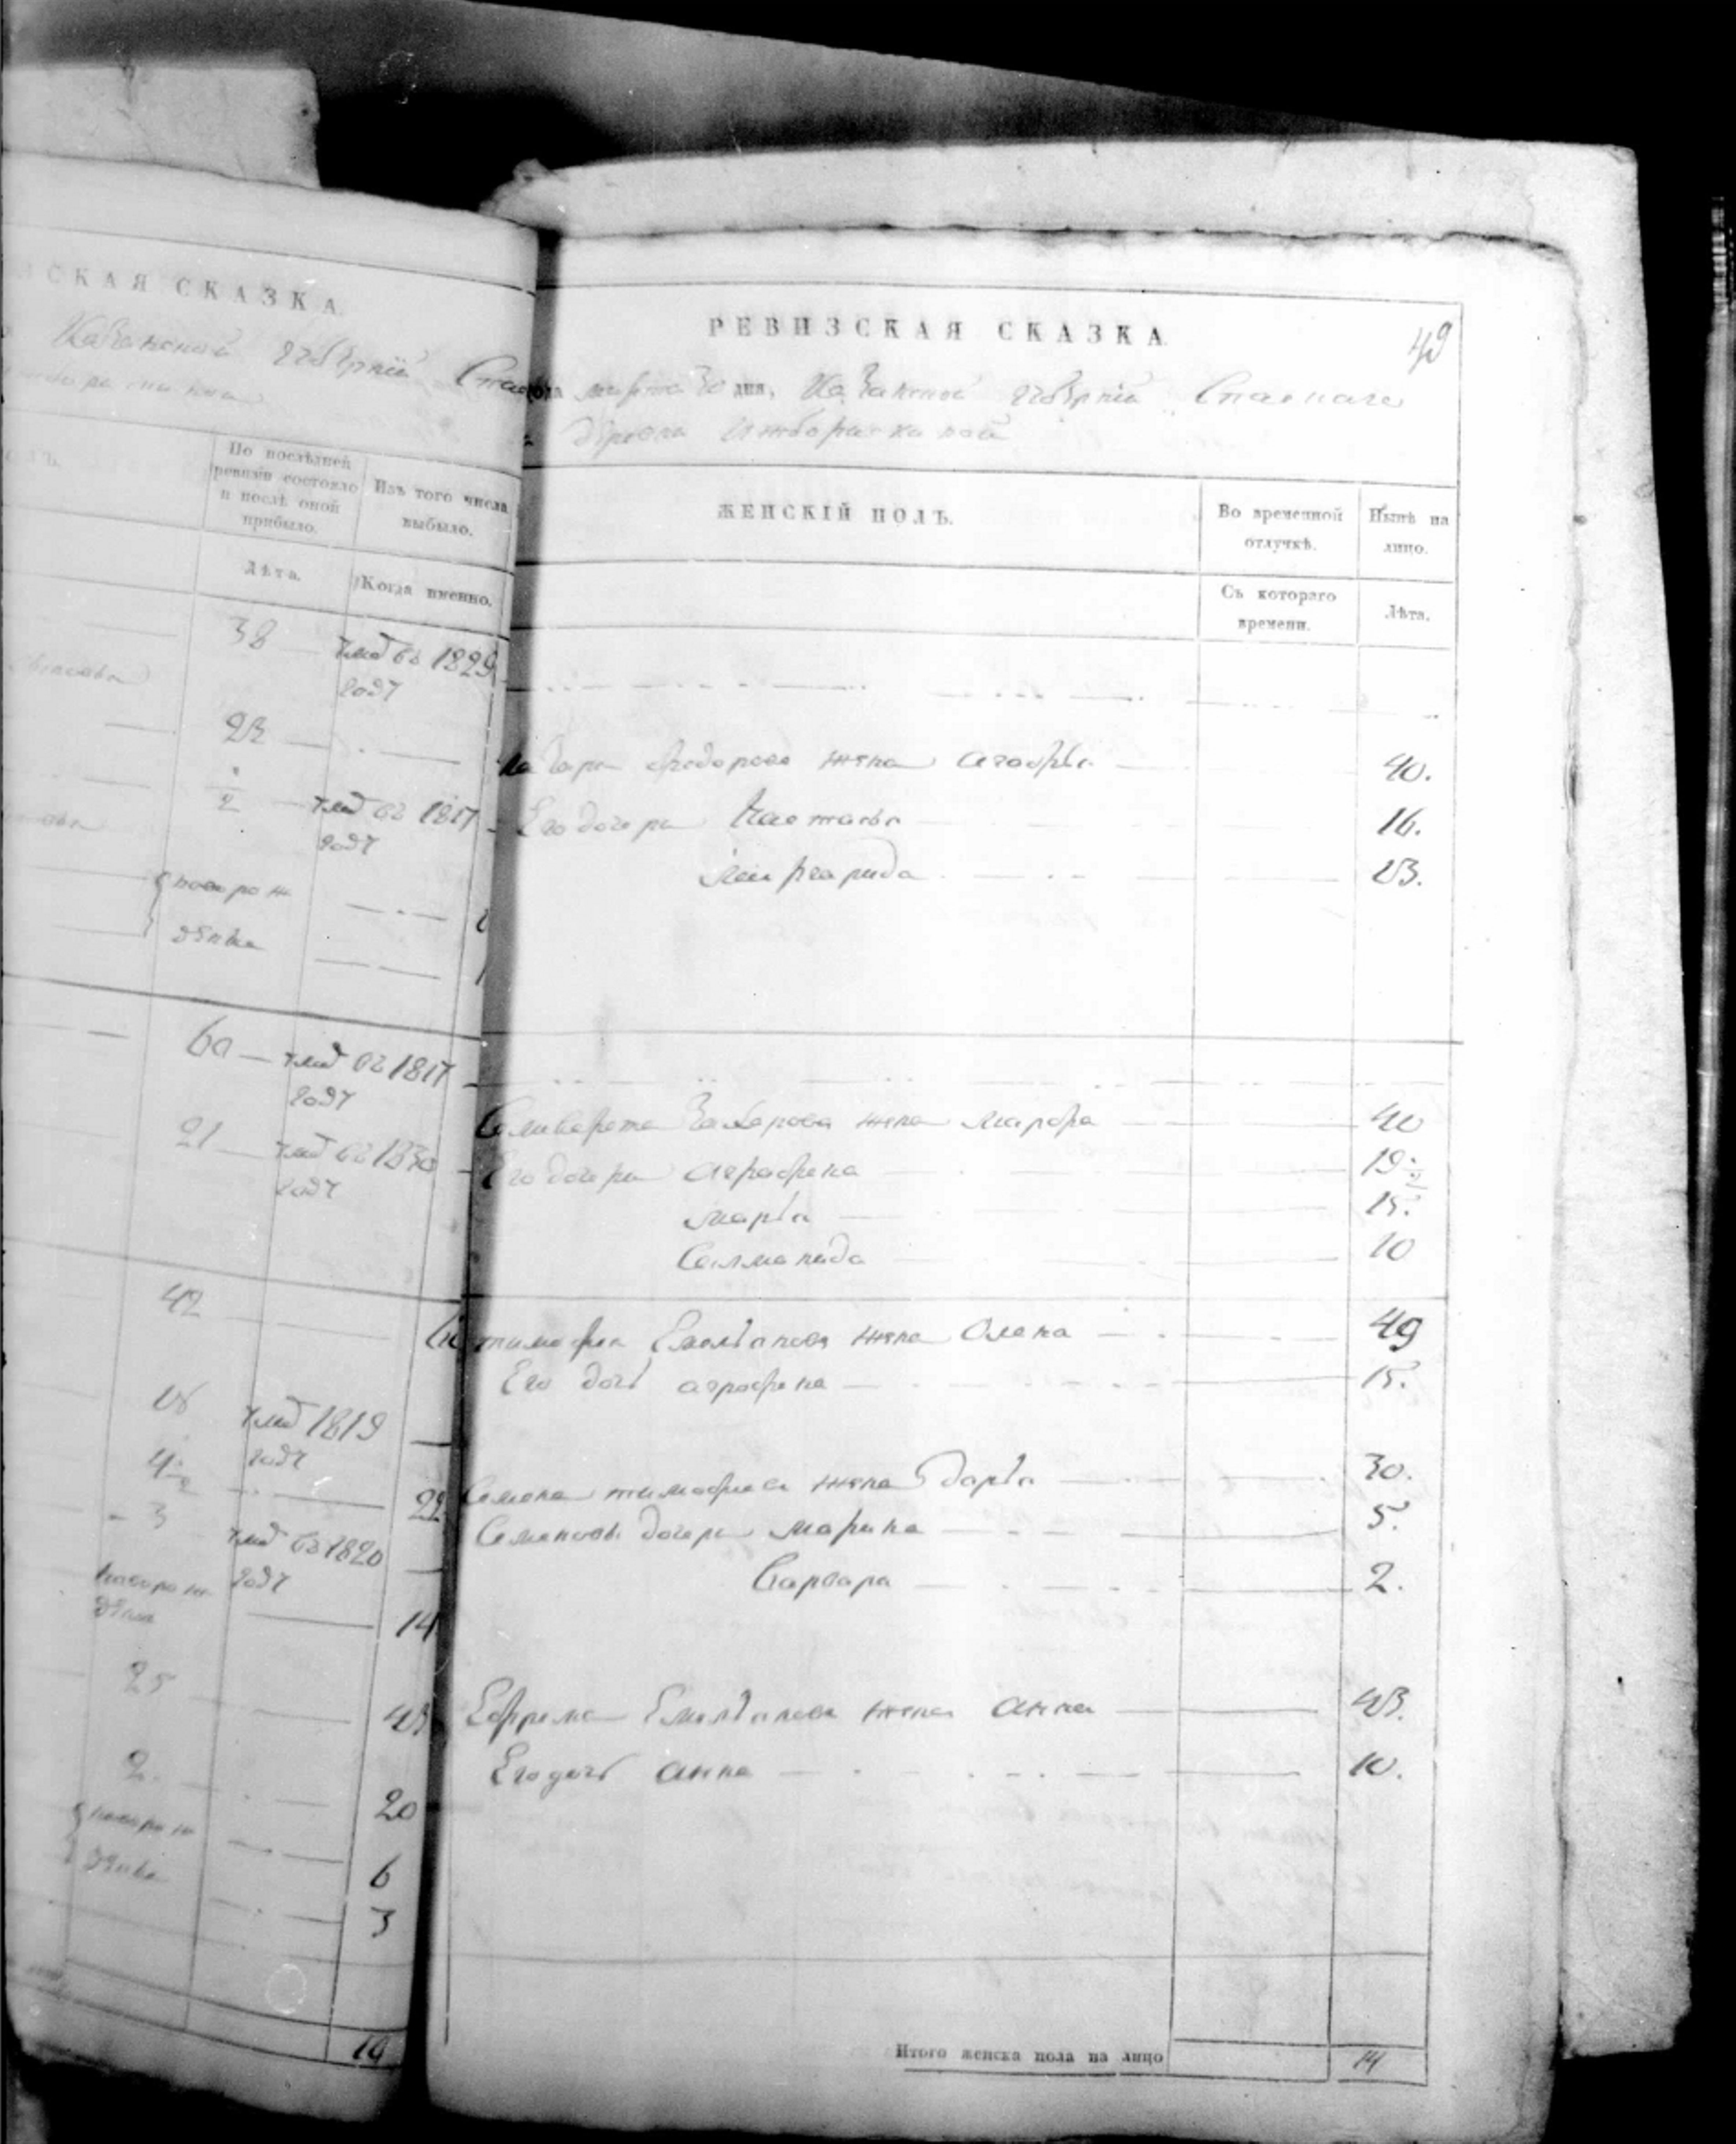 СКАЯ СКАЗКА
Казанской губернии Спас
По послѣдней ревизіи состояло и послѣ оной прибыло.
Изъ того числа выбыло.
Лѣта.
Когда именно.
38 умд въ 1829
году
22
½ умд въ 1817
году
новорож
дены
60 умд въ 1817
году
21 умд въ 1830
году
42
18 умд 1819
году
4½ 22
3 умд въ 1820
году
новорож
дены 14
25
43
2.
20
новорож
6
дены
3
19
РЕВИЗСКАЯ СКАЗКА
49
ода марта 30 дня, Казанской губерніи Спаскаго
деревни
ЖЕНСКІЙ ПОЛЪ.
Во временной отлучкѣ.
Нынѣ на лицо.
Съ котораго времени.
Лѣта.
Федорова жена 40.
Его дочери Настасья 16.
13.
Селиверста Захарова жена Марфа 40
Его дочери аграфена 19½
Марья 15.
Саламанида 10
тимофея Емельянова жена Олена 49
Его дочь аграфена 15.
Семена тимофеева жена дарья 30.
Семеновы дочери марина 5.
Варвара 2.
Ефрема Емельянова жена анна 43.
Его дочь анна 10.
Итого женска пола на лицо 14